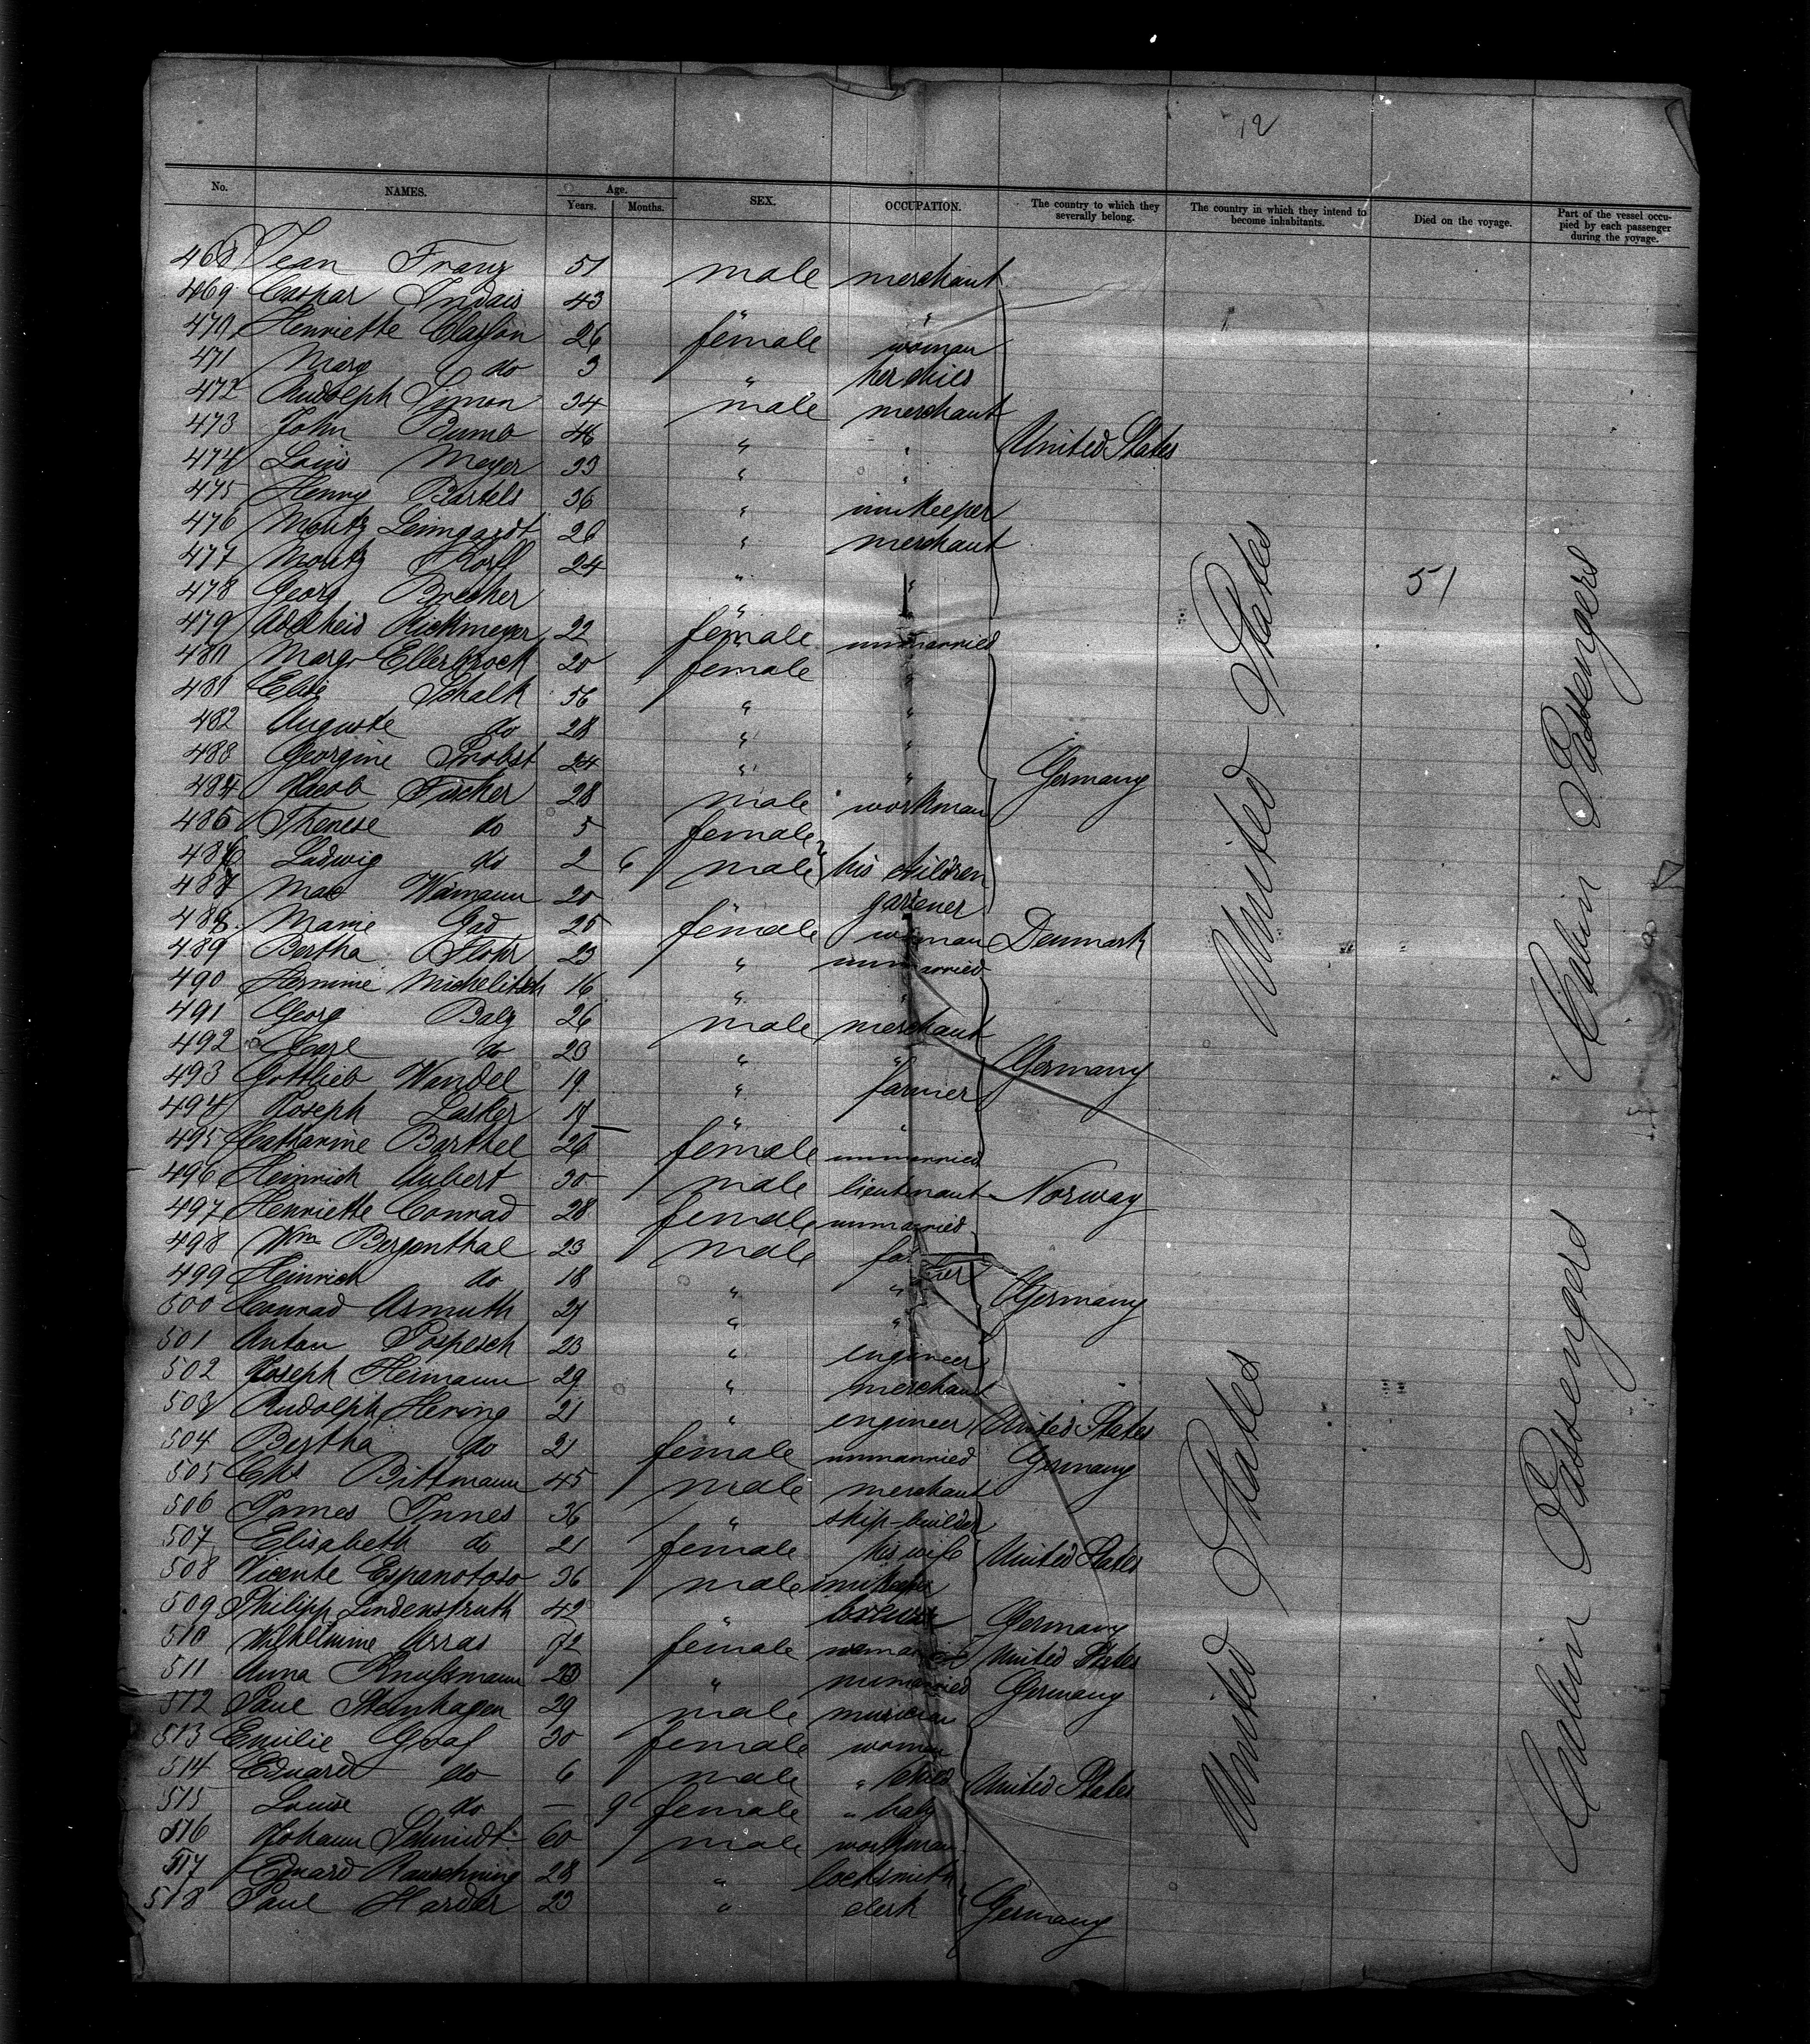 12
No. NAMES. Age. Years. Months. SEX. OCCUPATION. The country to which they severally belong. The country in which they intend to become inhabitants. Died on the voyage. Part of the vessel occupied by each passenger during the voyage.
468 Jean Franz 51 male merchant
469 Caspar 43 " "
470 Henriette Clayson 26 female woman
471 Marg do 3 " her child
472 Rudolph Simon 34 male merchant
473 John Bumb 46 " " United States
474 Louis Meyer 33 " "
475 Henny Bartels 36 " innkeeper
476 Moritz Leimgardt 26 " merchant
477 Moritz Korff 24 " "
478 Georg Brecher " "
51
479 Adelheid Rickmeyer 22 female unmarried
480 Margr Ellerbrock 20 female "
481 Elise Schalk 56 " "
482 Auguste do 28 " "
483 Georgine Probst 24 " " Germany
484 Jacob Fischer 28 male workman
485 Therese do 5 female
486 Ludwig do 2 6 male his children
487 Max Wamann 20 gardener
488 Marie Gad 25 female woman Denmark
489 Bertha Flohr 23 " unmarried
490 Hermine Michelitsch 16 " "
491 Georg Balz 26 male merchant
492 Carl do 20 " " Germany
493 Gottlieb Wandel 19 " farmer
494 Joseph Lasker 17 " "
495 Catharine Barthel 26 female unmarried
496 Heinrich Aubert 30 male lieutnant Norway
497 Henriette Conrad 28 female unmarried
498 Wm Bergenthal 23 male farmer
499 Heinrich do 18 " " Germany
500 Conrad Asmuth 27 " "
501 Anton Pospesch 23 " engineer
502 Joseph Heimann 29 " merchant
503 Rudolph Hering 21 " engineer United States
504 Bertha do 21 female unmarried Germany
505 Chs Bittmann 45 male merchant
506 James Innes 36 " ship-builder
507 Elisabeth do 21 female his wife United States
508 Vicente Espanotoso 36 male
509 Philipp Lindenstruth 42 " brewer Germany
510 Wilhelmine Arras 72 female woman United States
511 Anna Knussmann 23 " unmarried Germany
512 Paul Steinhagen 29 male musician
513 Emilie Graf 30 female woman
514 Eduard do 6 male " child United States
515 Louise do — 9 female " baby
516 Johann Schmidt 60 male workman
517 Eduard Rauschning 28 " locksmith
518 Paul Harder 23 " clerk Germany
United States
United States
Cabin Passengers
Cabin Passengers